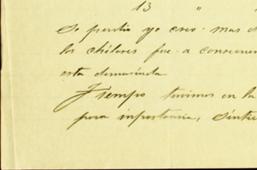 13 "
se perdio yo creo. mas d
los chilares fue a consecuen
esta demasiada
Tiempo tuvimos en la
poca importancia, sintie